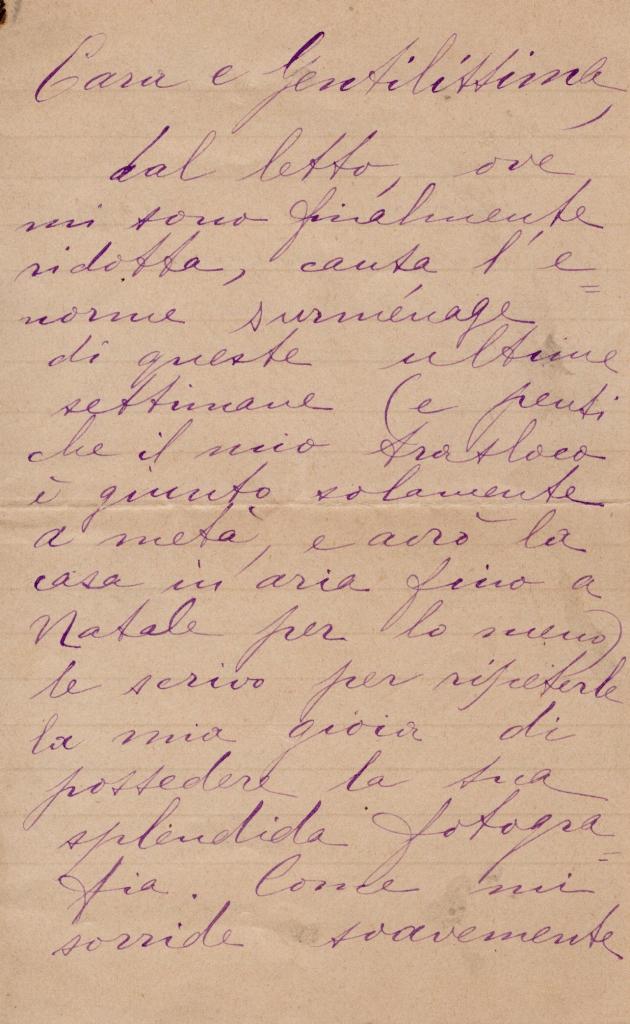 Cara e Gentilissima,
dal letto, ove
mi sono finalmente
ridotta, causa l'e=
norme surménage
di queste ultime
settimane (e pensi
che il mio trasloco
è giunto solamente
a metà, e avrò la
casa in aria fino a
Natale per lo meno)
le scrivo per ripeterle
la mia gioia di
possedere la sua
splendida fotogra=
fia. Come mi
sorride soavemente